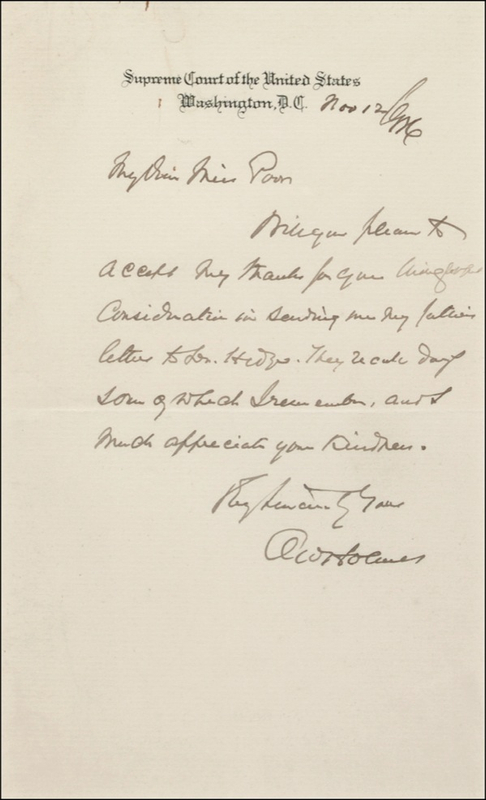 Supreme Court of the United States
Washington, D.C. Nov 12
My dear Miss Poor
Will you please to
accept my thanks for your
consideration in sending me my father's
letter to Dr. Hedge. They recall days
some of which I remember, and I
much appreciate your kindness.
Very sincerely yours
O W Holmes